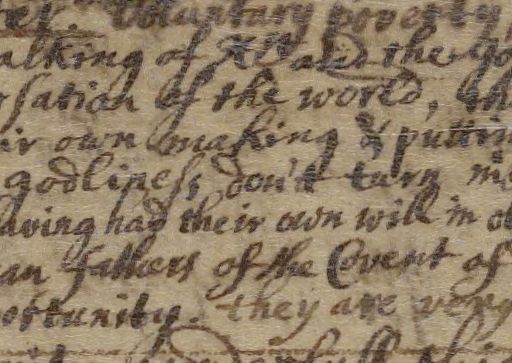 voluntary poverty,
alking of Xt and the Go
sation of the world, th
ir own making & puttin
godliness, don't turn m
aving had their own will in o
an fathers of the Covent of
ortunity. they are very